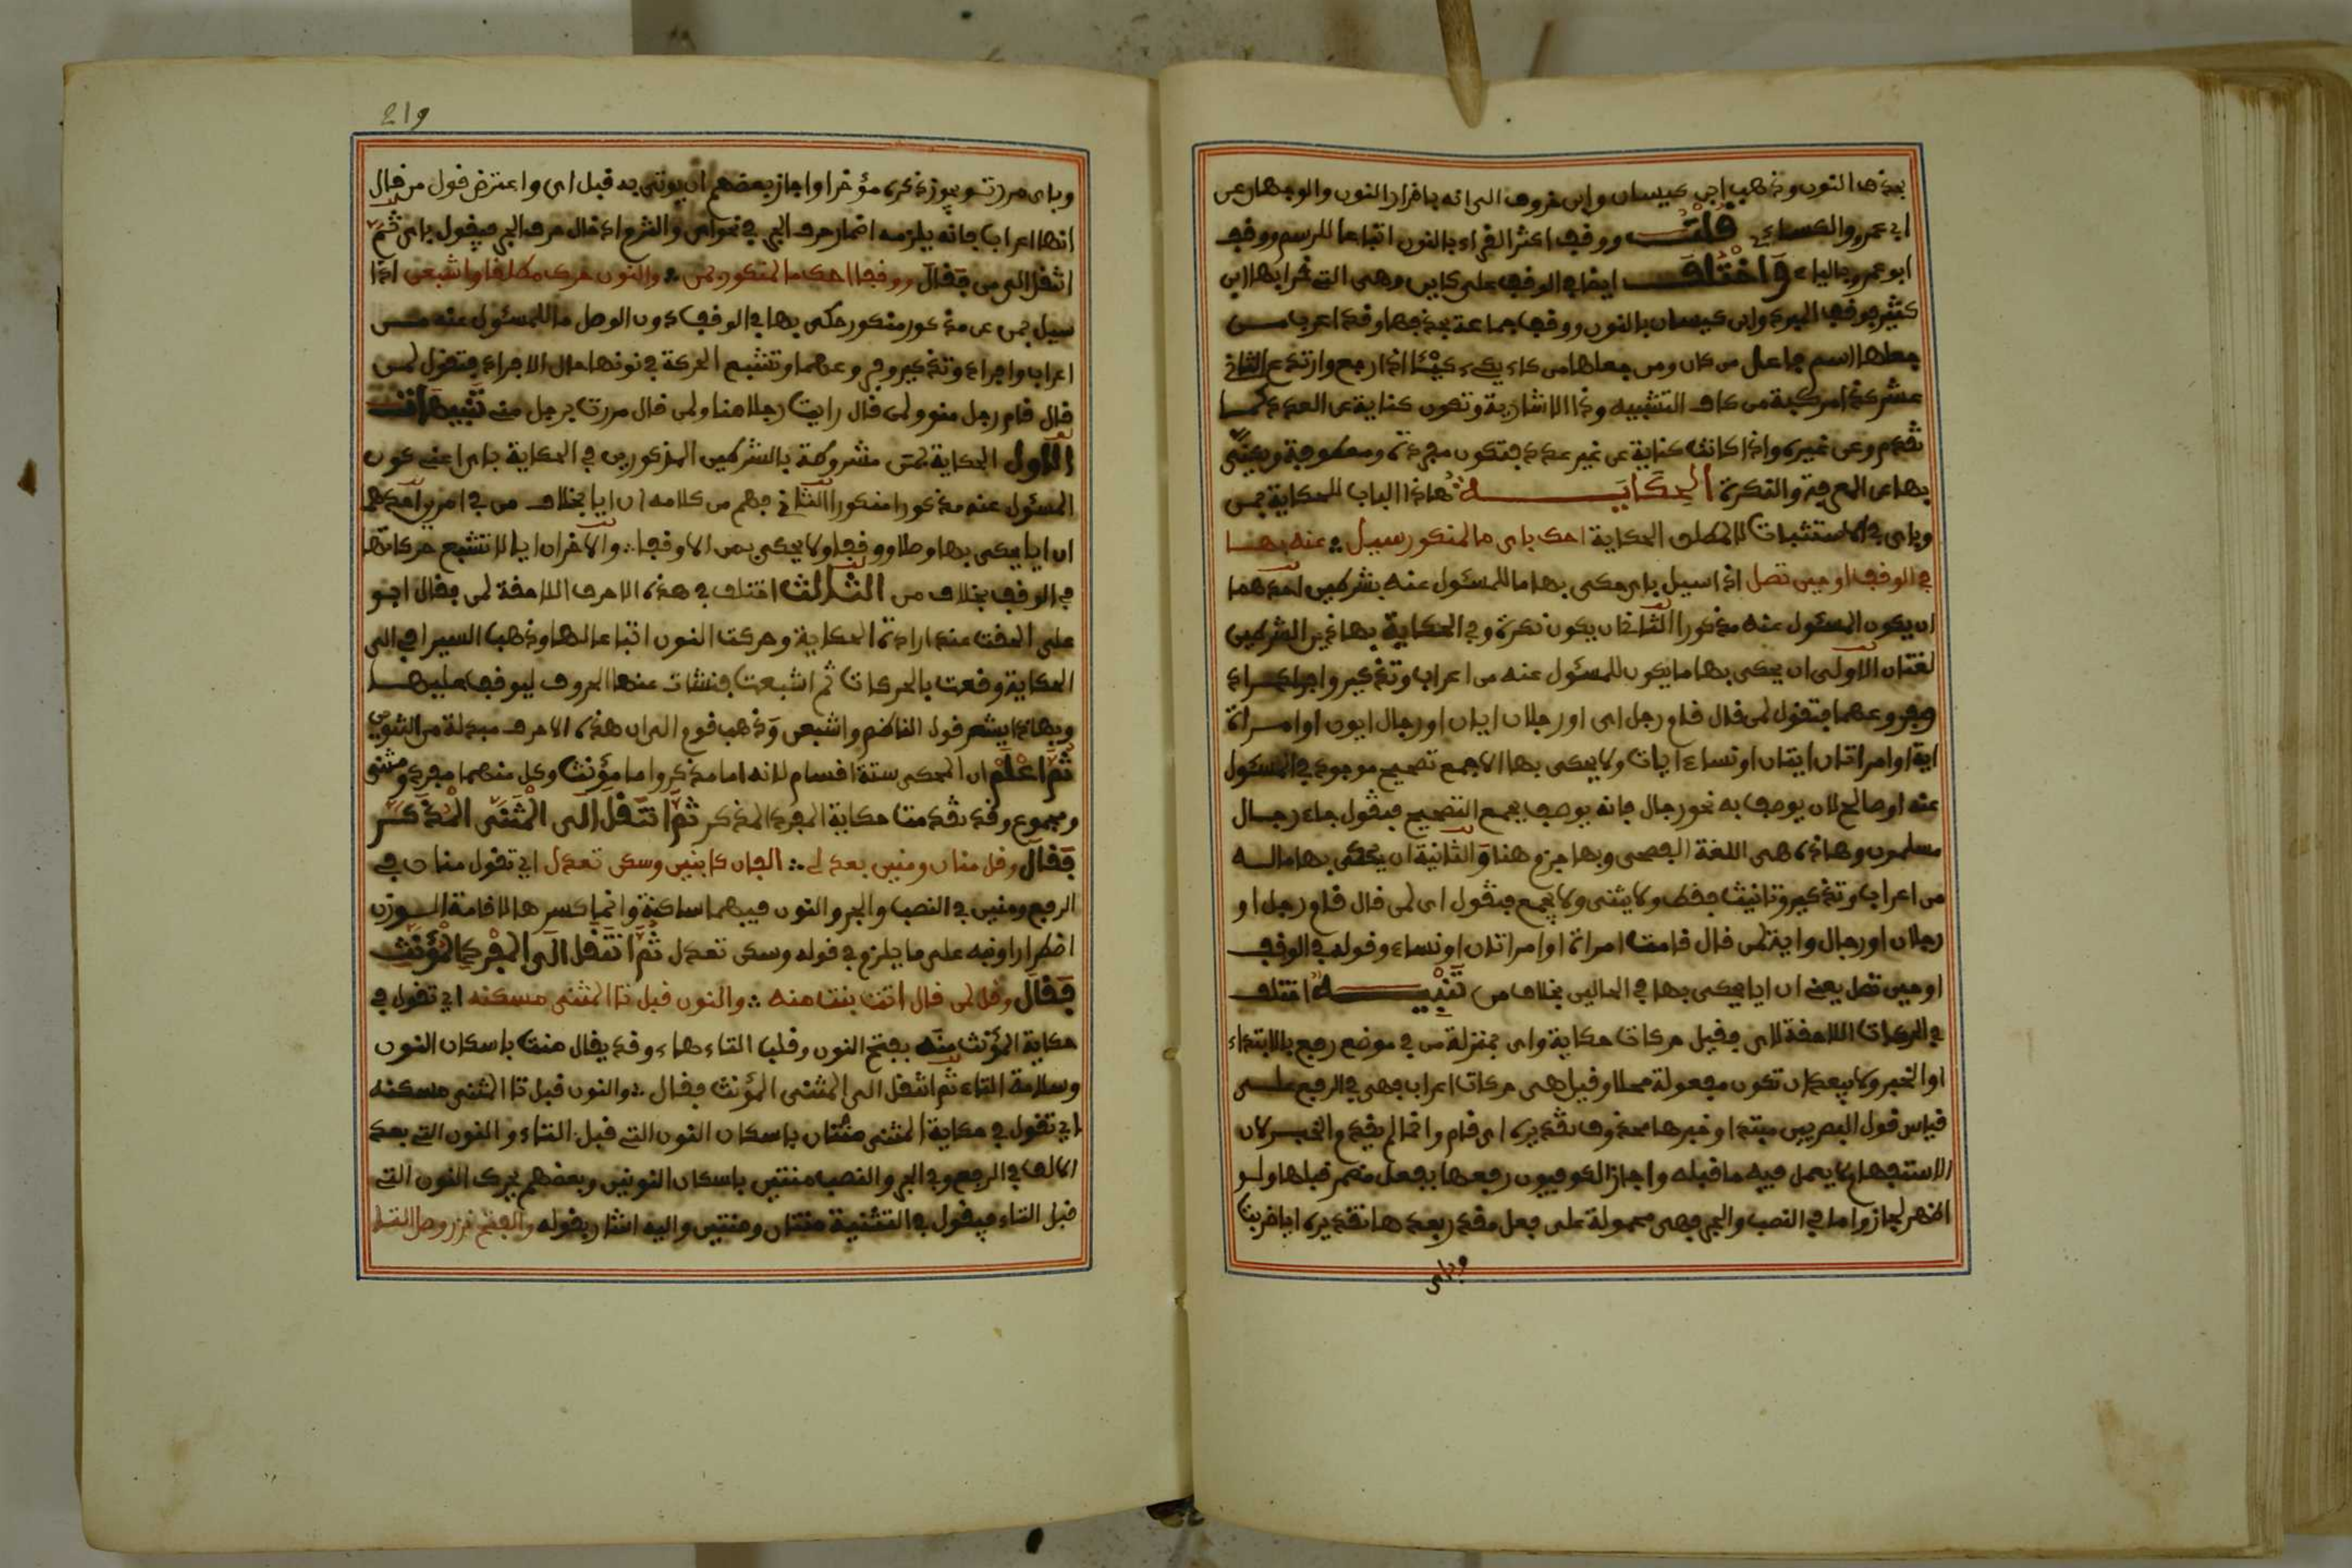 بحذف النون وذهب ابن كيسان وابن خروف الى انه بافراد النون والوجهان عن
ابي عمرو والكسائي قلت ووقف اكثر القراء بالنون اتباعا للرسم ووقف
ابو عمرو بالياء واختلف ايضا في الوقف على كاين وهي التي قرا بها ابن
كثير فوقف المبرد وابن كيسان بالنون ووقف جماعة بحذفها وقد اعرب من
جعلها اسم فاعل من كان ومن جعلها من كاء يكيء كيئا اذا رجع وارتدع الثاني
عشر كذا مركبة من كاف التشبيه وذا الاشارية وتكون كناية عن العدد كما
تقدم وعن غيره واذا كانت كناية عن غير عدد فتكون مفردة ومعطوفة ويكنى
بها عن المعرفة والنكرة الحكايـــة هذا الباب للحكاية بمن
وباى في الاستثبات لا لمطلق الحكاية احك باى ما لمنكور سيل ∴ عنه بها
في الوقف او حين تصل اذا سيل باى حكى بها ما للمسئول عنه بشرطين احدهما
ان يكون المسئول عنه مذكورا الثاني ان يكون نكرة وفي الحكاية بها بهذين الشرطين
لغتان الاولى ان يحكى بها ما يكون للمسئول عنه من اعراب وتذكير وافراد
وفروعهما فتقول لمن قال قام رجل اى او رجلان ايان او رجال ايون او امراة
اية او امراتان ايتان او نساء ايات ولا يحكى بها الا جمع تصحيح موجود في المسئول
عنه او صالح لان يوصف به نحو رجال فانه يوصف بجمع التصحيح فيقول جاء رجال
مسلمون وهذه هي اللغة الفصحى وبها جزم هنا والثانية ان يحكى بها ما له
من اعراب وتذكير وتانيث فقط ولا يثنى ولا يجمع فتقول اى لمن قال قام رجل او
رجلان او رجال واية لمن قال قامت امراة او امراتان او نساء وقوله في الوقف
او حين تصل يعني ان ايا يحكى بها في الحالين بخلاف من تنبيـــه اختلف
في الحركات اللاحقة لاى فقيل حركات حكاية واى بمنزلة من في موضع رفع بالابتداء
او الخبر ولا يبعد ان تكون مفعولة محلا وقيل هي حركات اعراب فهي في الرفع على
قياس قول البصريين مبتدا وخبرها محذوف تقديره اى قام وانما لم يقدم الخبر لان
الاستفهام لا يعمل فيه ما قبله واجاز الكوفيون رفعها بفعل مضمر قبلها ولو
اظهر لجاز واما في النصب والجر فهي محمولة على فعل مقدر بعدها تقديره ايا ضربت
وباى
219
وباى مررت ويجوز ذكره مؤخرا واجاز بعضهم ان يوتى به قبل اى واعترض قول من قال
انها اعراب فانه يلزمه اضمار حرف الجر في نحو اى والتزم ادخال حرف الجر فيقول باى ثم
انتقل الى من فقال ووقفا احك ما لمنكور بمن ∴ والنون حرك مطلقا واشبعن اذا
سيل بمن عن مذكور منكور حكى بها في الوقف دون الوصل ما للمسئول عنه من
اعراب وافراد وتذكير وفروعهما وتشبع الحركة في نونها حال الافراد فتقول لمن
قال قام رجل منو ولمن قال رايت رجلا منا ولمن قال مررت برجل مني تنبيهات
الاول الحكاية بمن مشروطة بالشرطين المذكورين في الحكاية باى اعني كون
المسئول عنه مذكورا منكورا الثاني فهم من كلامه ان ايا يخالف من في امرين احدهما
ان ايا يحكى بها وصلا ووقفا ولا يحكى بمن الا وقفا ∴ والاخر ان ايا لا تشبع حركاتها
في الوقف بخلاف من الثالث اختلف في هذه الاحرف اللاحقة لمن فقال ابو
علي الحقت عند ارادة الحكاية وحركت النون اتباعا لها وذهب السيرافي الى
الحكاية وقعت بالحركات ثم اشبعت فنشات عنها الحروف ليوقف عليها
وبهذا يشعر قول الناظم واشبعن وذهب قوم الى ان هذه الاحرف مبدلة من التنوين
ثم اعلم ان المحكى ستة اقسام لانه اما مذكر واما مؤنث وكل منهما مفرد ومثنى
ومجموع وقد تقدمت حكاية المفرد المذكر ثم انتقل الى المثنى المذكر
فقال وقل منان ومنين بعد لي ∴ الفان كابنين وسكن تعدل اي تقول منان في
الرفع ومنين في النصب والجر والنون فيهما ساكنة وانما كسرها لاقامة الوزن
اضطرارا ونبه على ما يلزم في قوله وسكن تعدل ثم انتقل الى المفرد المؤنث
فقال وقل لمن قال اتت بنت منه ∴ والنون قبل تا المثنى مسكنه اي تقول في
حكاية المؤنث منه بفتح النون وقلب التاء هاء وقد يقال منت باسكان النون
وسلامة التاء ثم انتقل الى المثنى المؤنث فقال ∴ والنون قبل تا المثنى مسكنه
اي تقول في حكاية المثنى منتان باسكان النون التي قبل التاء والنون التي بعد
الالف في الرفع وفي الجر والنصب منتين باسكان النونين وبعضهم يحرك النون التي
قبل التاء فيقول في التثنية منتان ومنتين واليه اشار بقوله والفتح نزر وصل التا